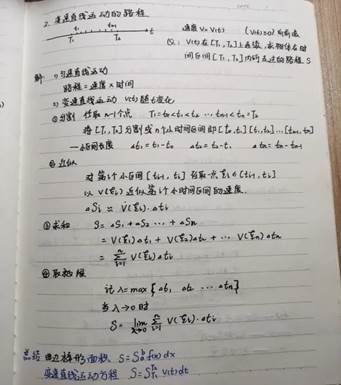 2. 变速直线运动的路程
t₁ tₙ₋₁ t
T₁ T₂
速度 V=V(t) (V(t)≥0)
Q: V(t)在[T₁,T₂]上连续,求物体在时
间区间[T₁,T₂]内所走过的路程 S
解: 1) 匀速直线运动
路程=速度×时间
2) 变速直线运动 V(t)随t变化
①分割 任取n-1个点 T₁=t₀<t₁<t₂ … tₙ₋₁<tₙ=T₂
将[T₁,T₂]分割成n个小时间区间即[t₀,t₁][t₁,t₂]…[tₙ₋₁,tₙ]
小区间长度 Δt₁=t₁-t₀ Δt₂=t₂-t₁ Δtₙ=tₙ-tₙ₋₁
②近似
对第i个小区间[tᵢ₋₁,tᵢ]任取一点ξᵢ∈[tᵢ₋₁,tᵢ]
以V(ξᵢ)近似第i个小时间区间的速度.
ΔSᵢ≈V(ξᵢ)·Δtᵢ
③求和 S=ΔS₁+ΔS₂+…+ΔSₙ
=V(ξ₁)Δt₁+V(ξ₂)Δt₂+…V(ξₙ)Δtₙ
=∑ᵢ₌₁ⁿ V(ξᵢ)Δtᵢ
④取极限
记λ=max{Δt₁, Δt₂ … Δtₙ}
当λ→0时
S=lim λ→0 ∑ᵢ₌₁ⁿ V(ξᵢ)·Δtᵢ
总结 曲边梯形面积 S=∫ₐᵇf(x)dx
变速直线运动方程 S=∫V(t)dt